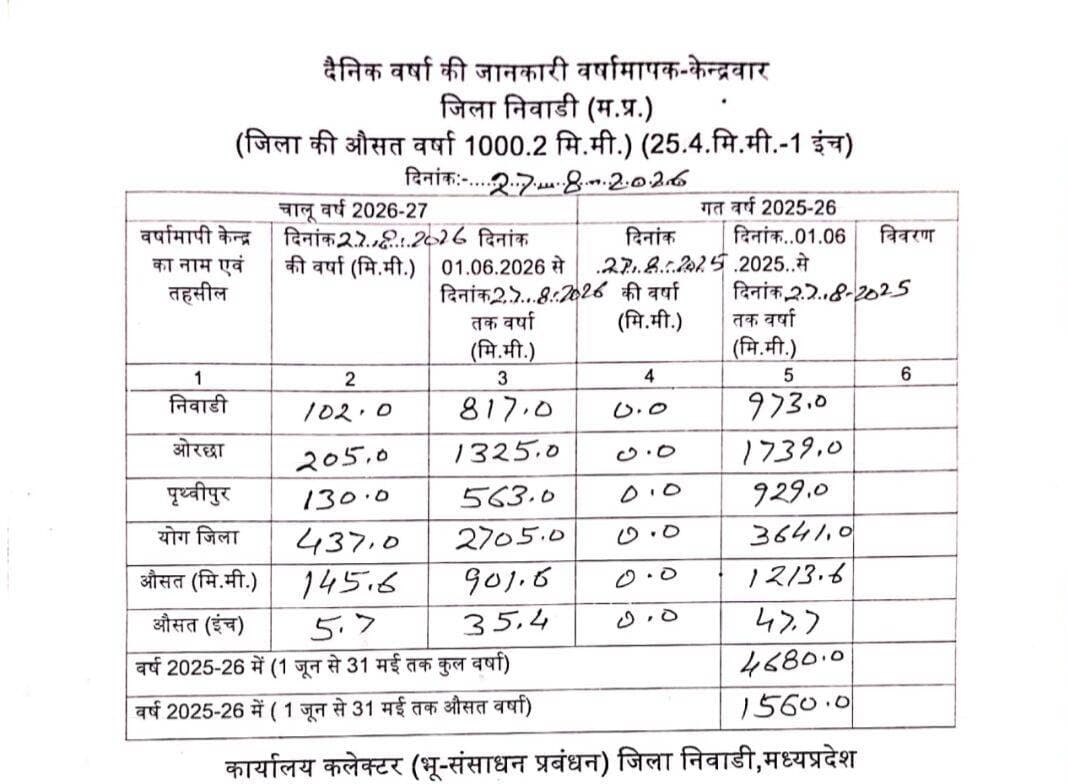 दैनिक वर्षा की जानकारी वर्षामापक-केन्द्रवार
जिला निवाडी (म.प्र.)
(जिला की औसत वर्षा 1000.2 मि.मी.) (25.4.मि.मी.-1 इंच)
दिनांक:-....27-8-2026
चालू वर्ष 2026-27 गत वर्ष 2025-26
वर्षामापी केन्द्र का नाम एवं तहसील
दिनांक27.8.2026 की वर्षा (मि.मी.)
दिनांक 01.06.2026 से दिनांक27.8.2026 तक वर्षा (मि.मी.)
दिनांक .27.8.2025 की वर्षा (मि.मी.)
दिनांक..01.06 .2025..से दिनांक27.8-2025 तक वर्षा (मि.मी.)
विवरण
1 2 3 4 5 6
निवाडी 102.0 817.0 0.0 973.0
ओरछा 205.0 1325.0 0.0 1739.0
पृथ्वीपुर 130.0 563.0 0.0 929.0
योग जिला 437.0 2705.0 0.0 3641.0
औसत (मि.मी.) 145.6 901.6 0.0 1213.6
औसत (इंच) 5.7 35.4 0.0 47.7
वर्ष 2025-26 में (1 जून से 31 मई तक कुल वर्षा) 4680.0
वर्ष 2025-26 में ( 1 जून से 31 मई तक औसत वर्षा) 1560.0
कार्यालय कलेक्टर (भू-संसाधन प्रबंधन) जिला निवाडी,मध्यप्रदेश